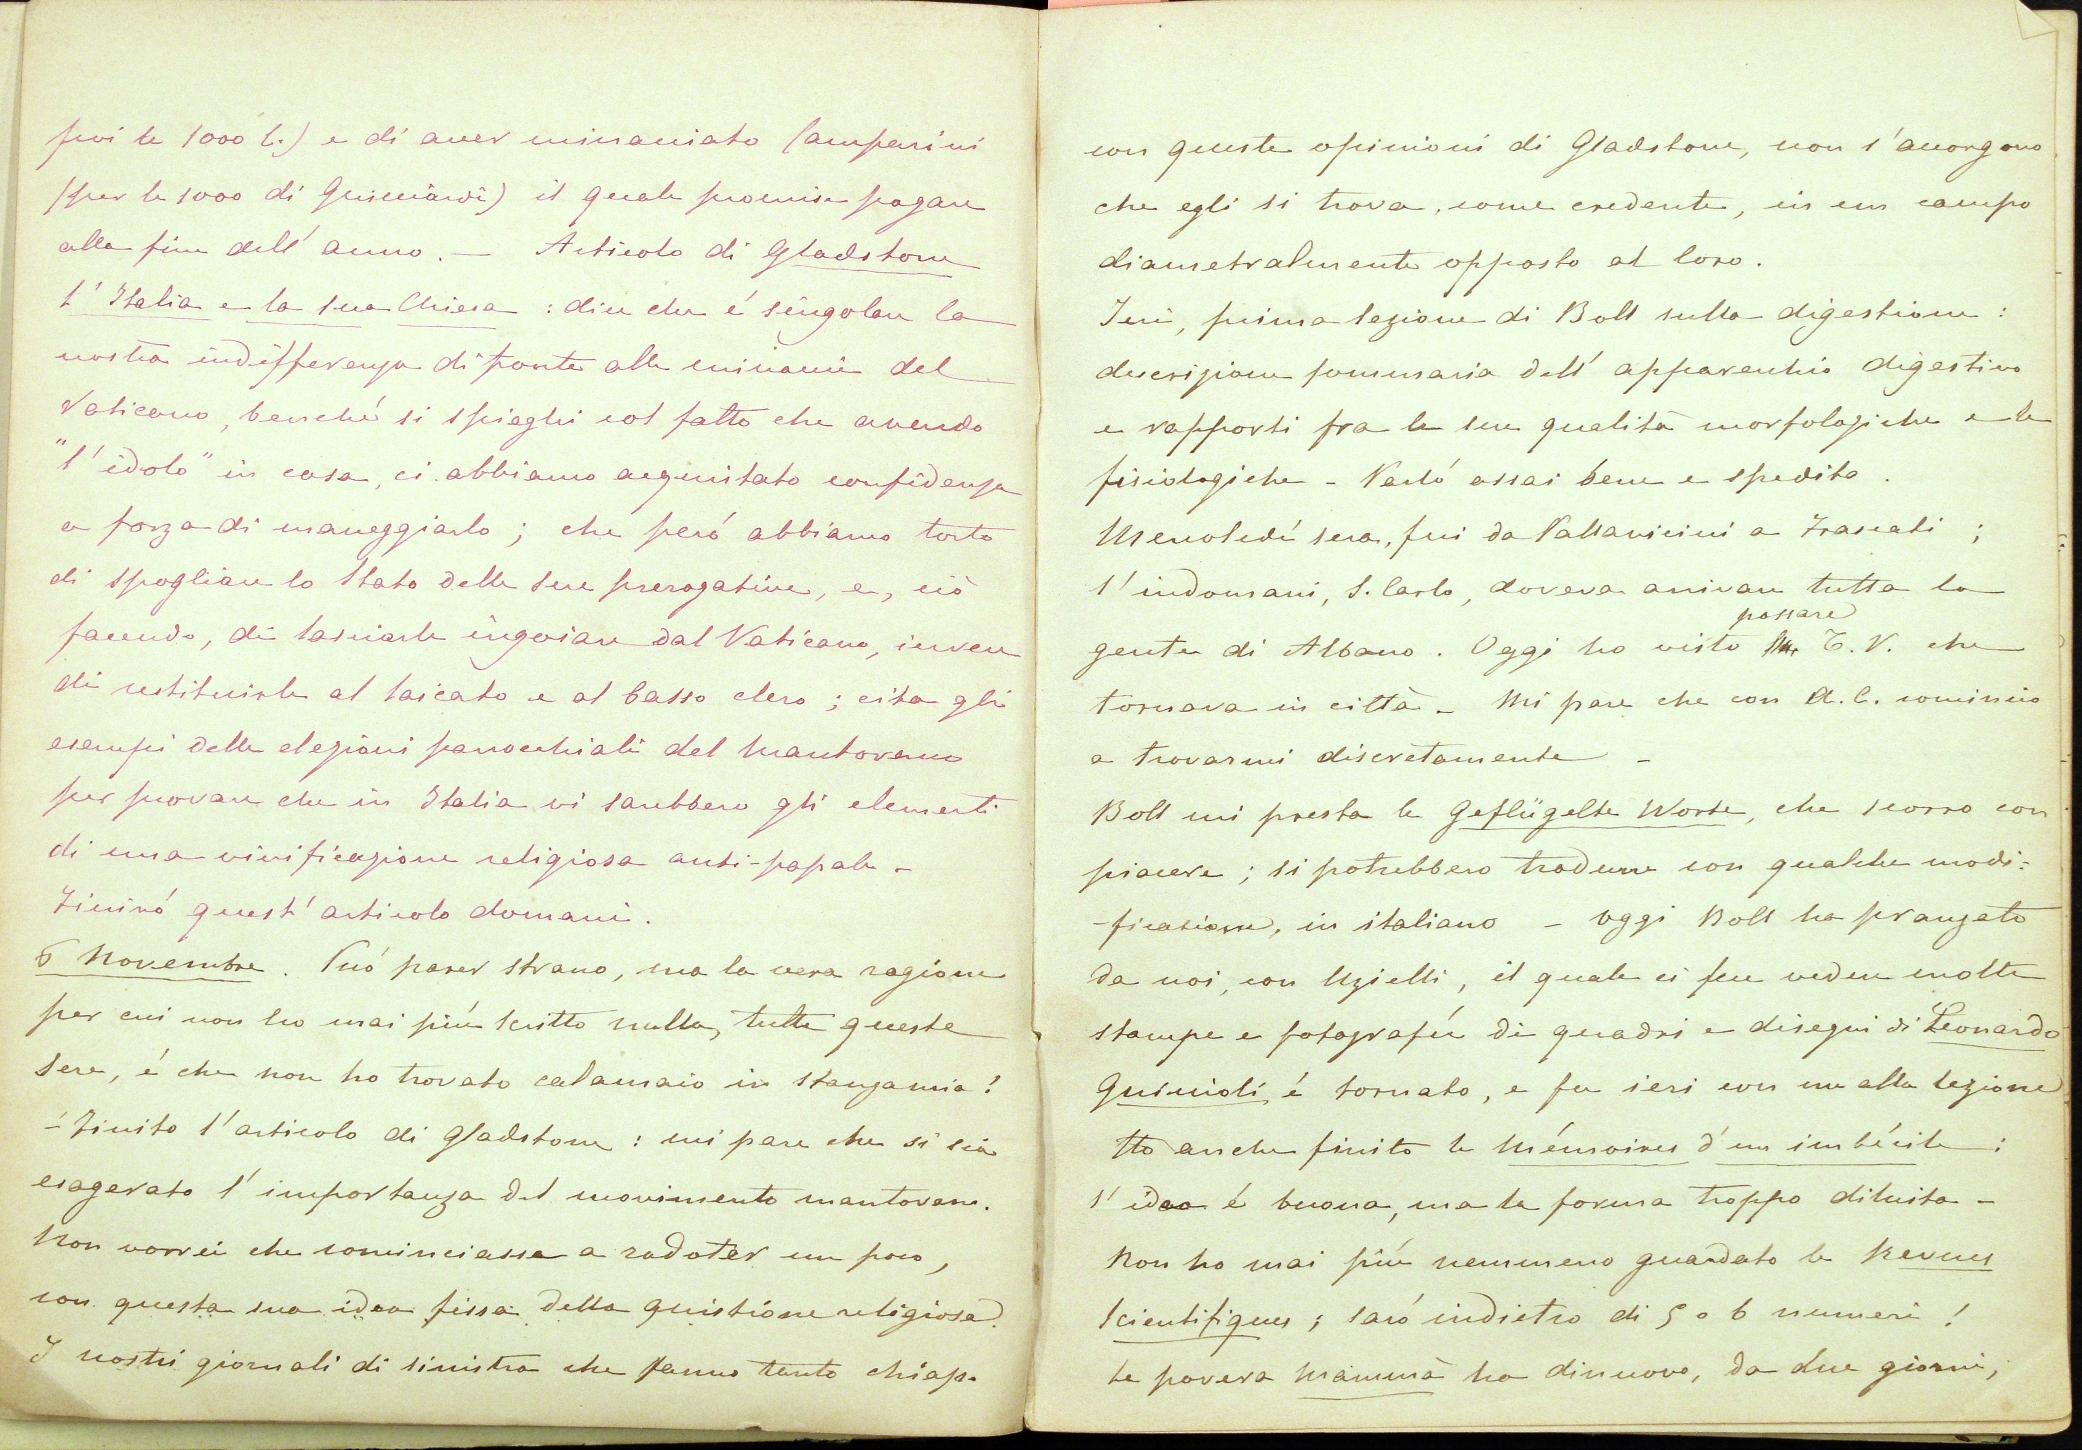 poi le 1000 l.) e di aver minacciato Camparini
(per le 1000 di Guicciardi) il quale promise pagare
alla fine dell' anno. — Articolo di Gladstone
L' Italia e la sua Chiesa : dice che é singolare la
nostra indifferenza di fronte alle minacce del
Vaticano, benché si spieghi col fatto che avendo
"l' idolo" in casa, ci abbiamo acquistato confidenza
a forza di maneggiarlo ; che peró abbiamo torto
di spogliare lo Stato delle sue prerogative, e, ciò
facendo, di lasciarle ingoiare dal Vaticano, invece
di restituirle al laicato e al basso clero ; cita gli
esempi delle elezioni parrocchiali del Mantovano
per provare che in Italia vi sarebbero gli elementi
di una vivificazione religiosa anti-papale -
Finiró quest' articolo domani.
6 Novembre . Puó parer strano, ma la vera ragione
per cui non ho mai piú scritto nulla, tutte queste
sere, é che non ho trovato calamaio in stanza mia!
- Finito l' articolo di Gladstone : mi pare che si sia
esagerato l' importanza del movimento mantovano.
Non vorrei che cominciasse a radoter un poco,
con questa sua idea fissa della quistione religiosa.
I nostri giornali di sinistra che fanno tanto chiasso
con queste opinioni di Gladstone, non s' accorgono
che egli si trova, come credente, in un campo
diametralmente opposto al loro.
Ieri, prima lezione di Boll sulla digestione :
descrizione sommaria dell' apparecchio digestivo
e rapporti fra le sue qualità morfologiche e le
fisiologiche - Parló assai bene e spedito .
Mercoledí sera, fui da Pallavicini a Frascati ;
l' indomani, S. Carlo, doveva arrivare tutta la
gente di Albano . Oggi ho visto passare T. V. che
tornava in città - Mi pare che con A. C. comincio
a trovarmi discretamente -
Boll mi presta le Geflügelte Worte, che scorro con
piacere ; si potrebbero tradurre con qualche modi-
-ficazione, in italiano - Oggi Boll ha pranzato
da noi, con Uzielli, il quale ci fece vedere molte
stampe e fotografie di quadri e disegni di Leonardo
Guiccioli é tornato, e fu ieri con me alla lezione
Ho anche finito le Mémoires d'un imbécile :
l' idea é buona, ma la forma troppo diluita -
Non ho mai piú nemmeno guardato le Revues
Scientifiques ; saró indietro di 5 o 6 numeri !
La povera Mammà ha di nuovo, da due giorni,